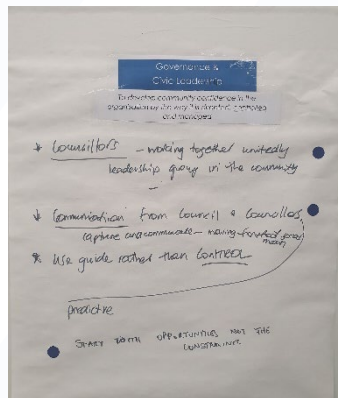 Governance &
Civic Leadership
To develop community confidence in the
organisation by the way it is directed, controlled
and managed
* Councillors - working together unitedly
leadership group in the community
* Communication from Council & Councillors
capture and communicate - moving forward
* Use guide rather than CONTROL
predictive
START WITH OPPORTUNITIES NOT THE
CONSTRAINTS